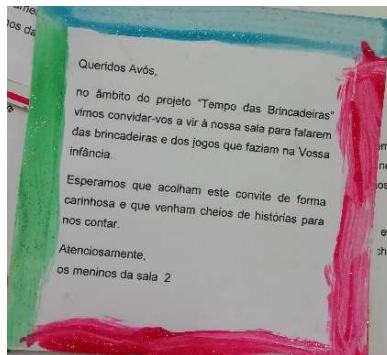 Queridos Avós,
no âmbito do projeto "Tempo das Brincadeiras"
vimos convidar-vos a vir à nossa sala para falarem
das brincadeiras e dos jogos que faziam na Vossa
infância.
Esperamos que acolham este convite de forma
carinhosa e que venham cheios de histórias para
nos contar.
Atenciosamente,
os meninos da sala 2